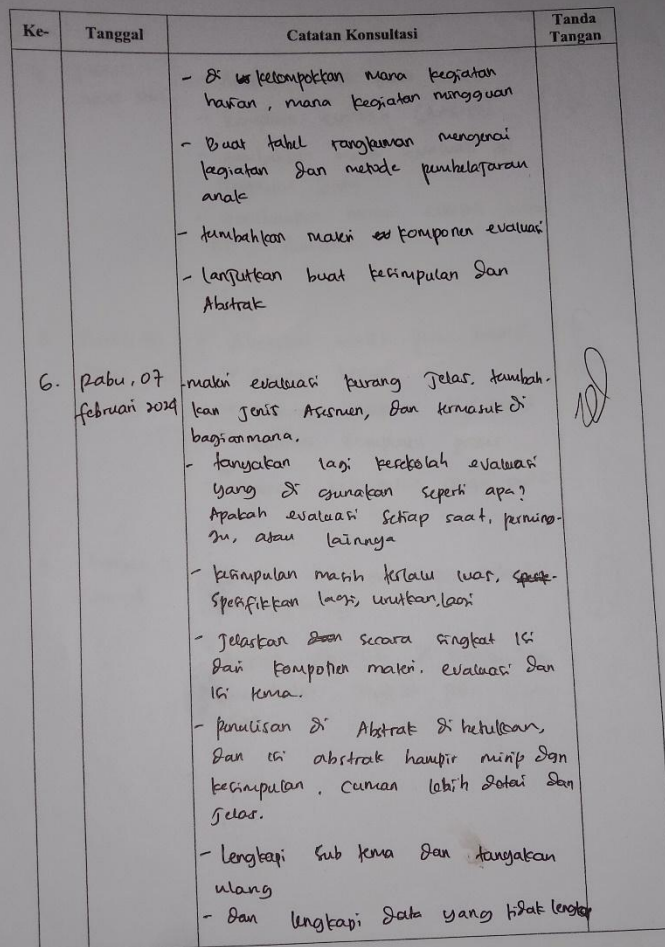 Ke- Tanggal Catatan Konsultasi Tanda Tangan
- di kelompokkan mana kegiatan
harian, mana kegiatan mingguan
- Buat tabel rangkuman mengenai
kegiatan dan metode pembelajaran
anak
- tambahkan materi komponen evaluasi
- lanjutkan buat kesimpulan dan
Abstrak
6. Rabu, 07 - materi evaluasi kurang jelas. tambah-
februari 2024 kan jenis Asesmen, dan termasuk di
bagian mana.
- tanyakan lagi kesekolah evaluasi
yang di gunakan seperti apa?
Apakah evaluasi setiap saat, perming-
gu, atau lainnya
- kesimpulan masih terlalu luas,
spesifikkan lagi, urutkan lagi
- Jelaskan secara singkat isi
dari komponen materi. evaluasi dan
isi tema.
- penulisan di Abstrak di betulkan,
dan isi abstrak hampir mirip dgn
kesimpulan. cuman lebih detai dan
jelas.
- Lengkapi sub tema dan tanyakan
ulang
- dan lengkapi data yang tidak lengkap